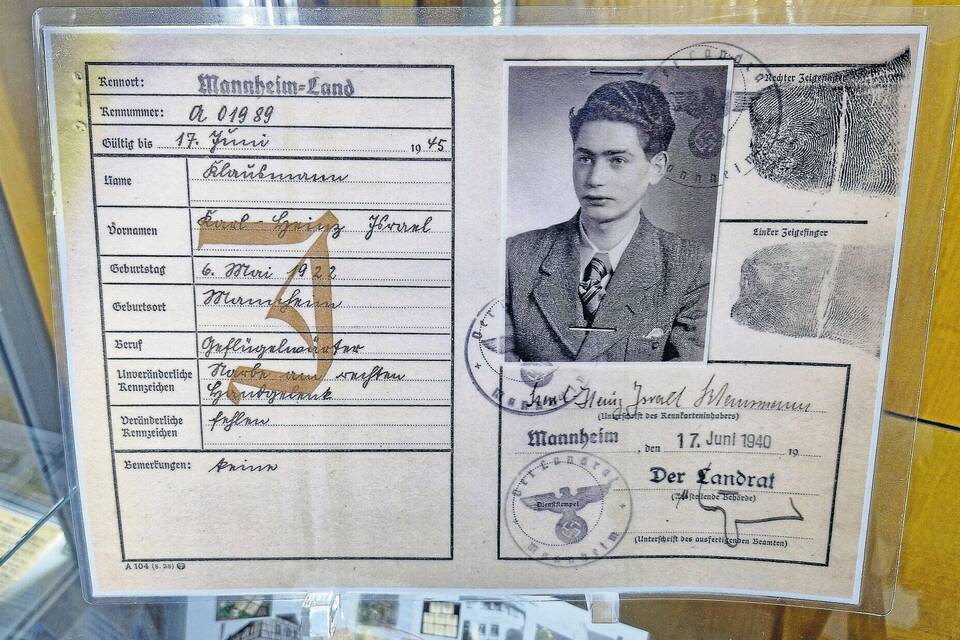 Kennort: Mannheim-Land
Kennummer: A 01989
Gültig bis 17. Juni 1945
Name Klausmann
Vornamen Karl-Heinz Israel
J
Geburtstag 6. Mai 1922
Geburtsort Mannheim
Beruf Geflügelwärter
Unveränderliche Kennzeichen Narbe am rechten
Handgelenk
Veränderliche Kennzeichen fehlen
Bemerkungen: keine
A 104 (8. 38)
Rechter Zeigefinger
Linker Zeigefinger
Der Landrat Mannheim
Karl Heinz Israel Klausmann
(Unterschrift des Kennkarteninhabers)
Mannheim, den 17. Juni 1940 19
Der Landrat
(Ausstellende Behörde)
Der Landrat Mannheim
Dienststempel
(Unterschrift des ausfertigenden Beamten)